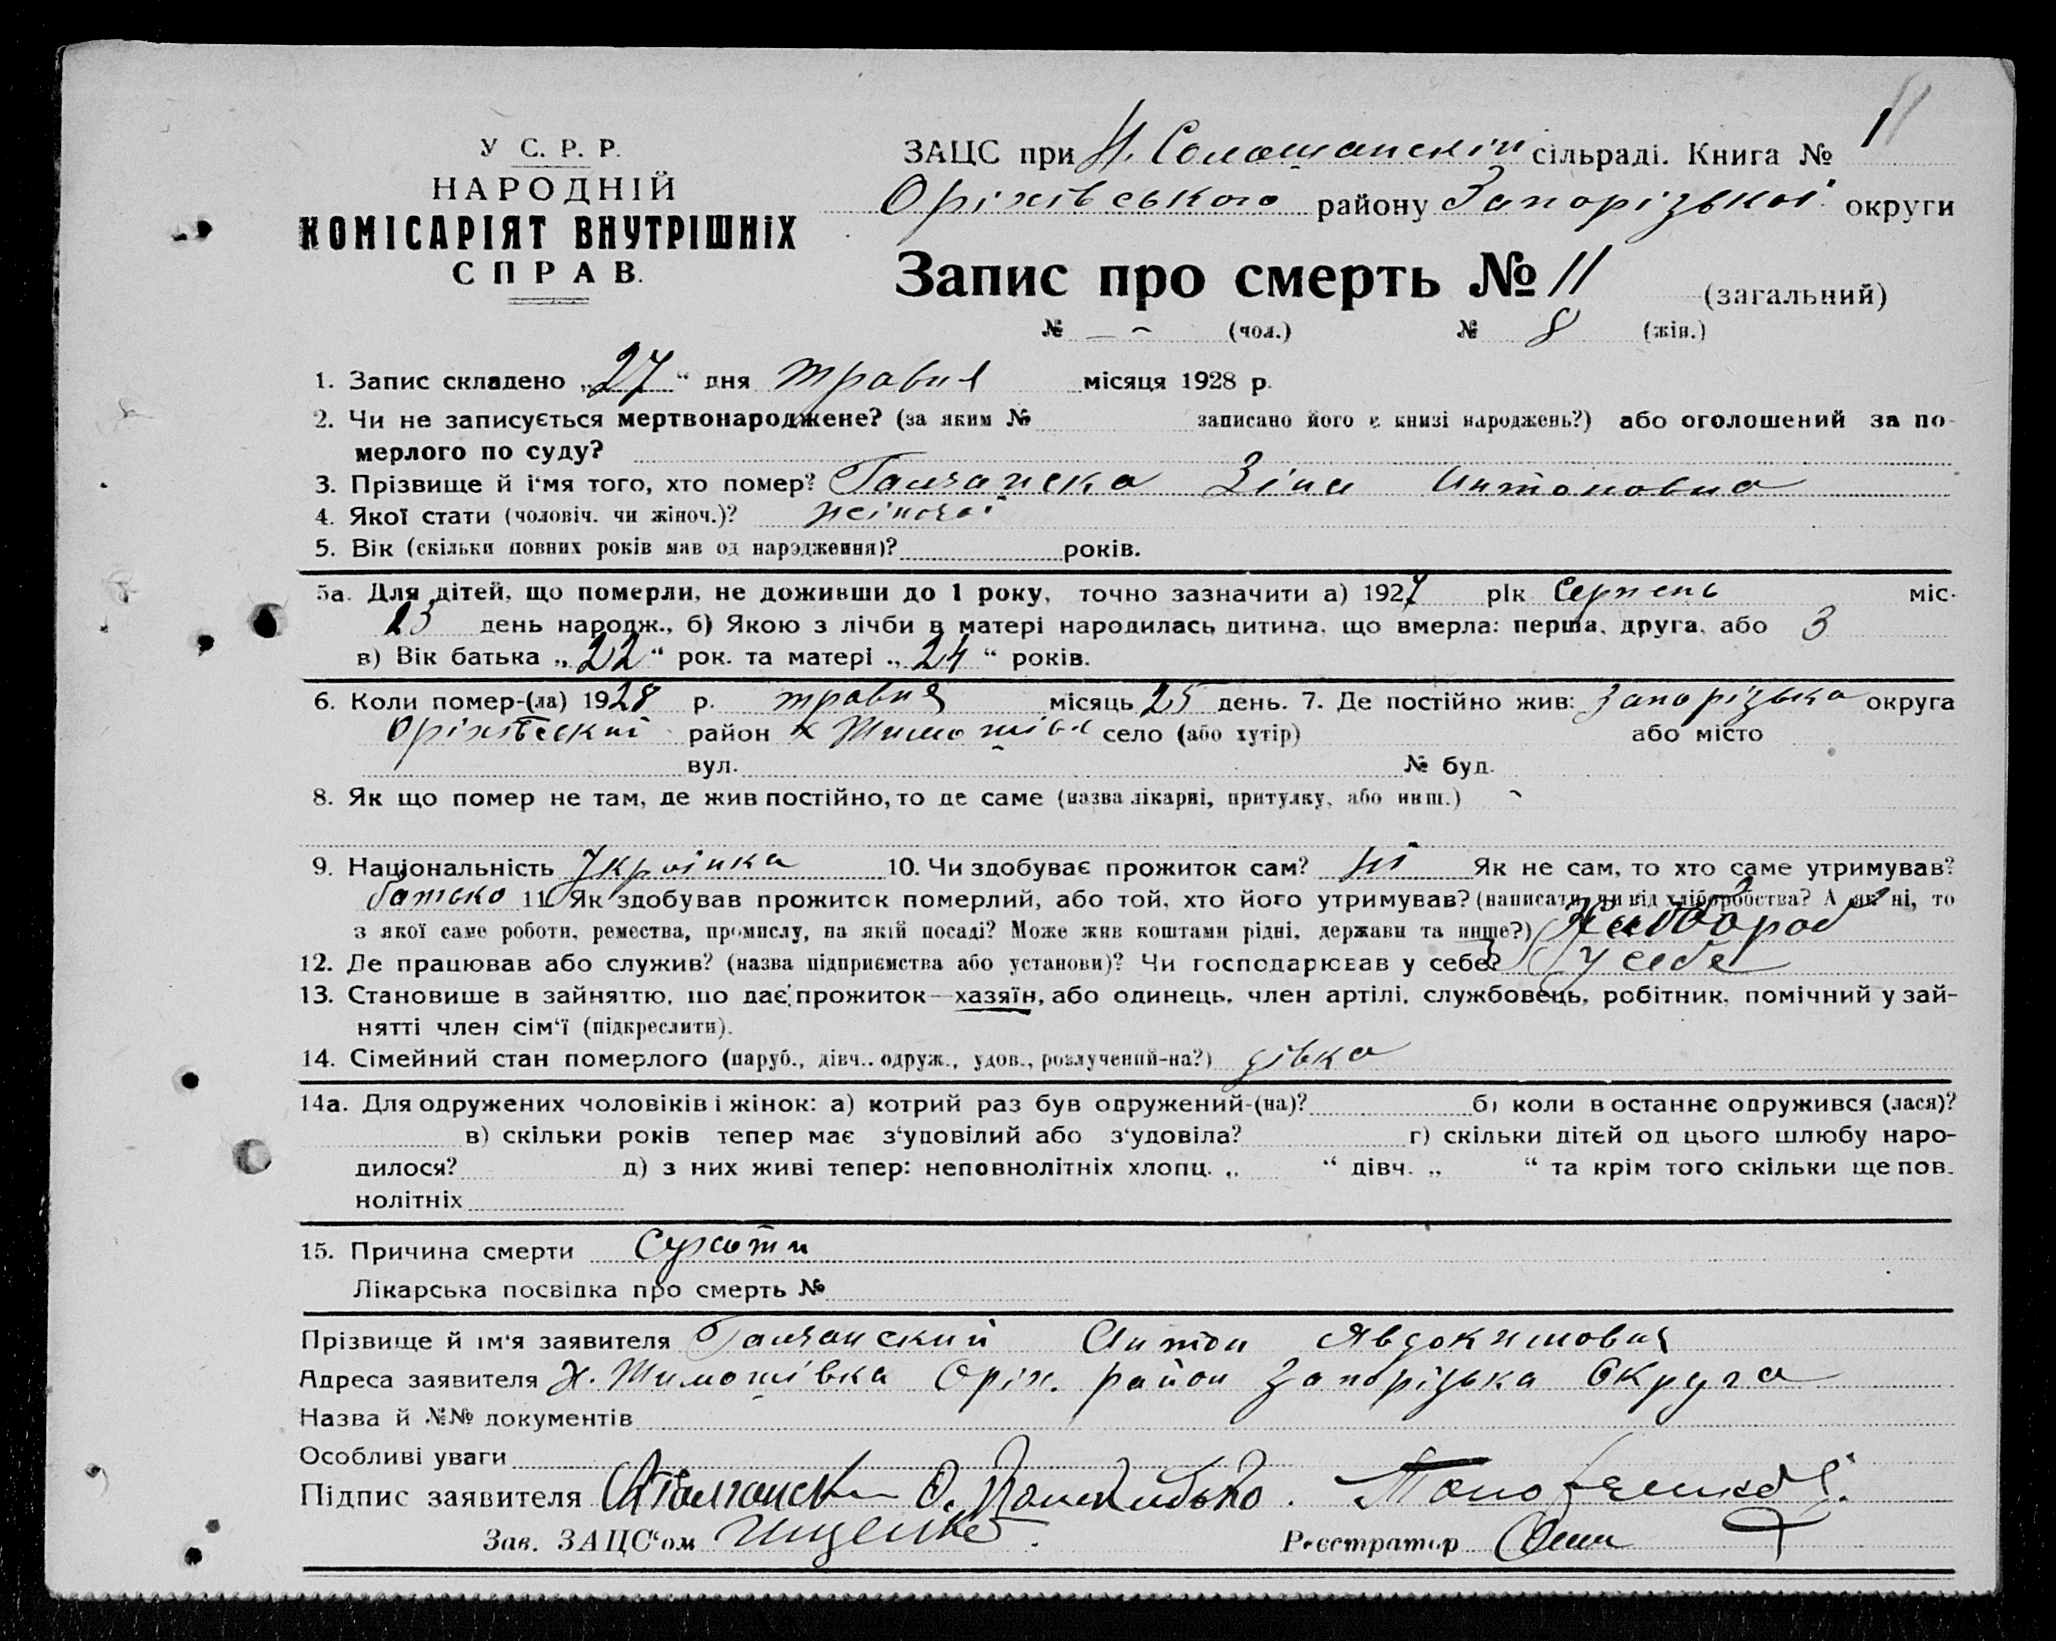 У С. Р. Р.
НАРОДНІЙ
КОМІСАРІЯТ ВНУТРІШНІХ
СПРАВ.
ЗАЦС при Н. Соломанскій сільраді. Книга № 1
Оріхівського району Запорізької округи
Запис про смерть № 11 (загальний)
№ — (чол.) № 8 (жін.)
1. Запис складено „27“ дня травня місяця 1928 р.
2. Чи не записується мертвонароджене? (за яким № записано його в книзі народжень?) або оголошений за по-
мерлого по суду?
3. Прізвище й і‘мя того, хто помер? Галчанска Зіна Антоновна
4. Якої стати (чоловіч. чи жіноч.)? жіночої
5. Вік (скільки повних років мав од народження)? років.
5а. Для дітей, що померли, не доживши до 1 року, точно зазначити а) 1927 рік Серпень міс.
23 день народж., б) Якою з лічби в матері народилась дитина, що вмерла: перша, друга, або 3
в) Вік батька „22“ рок. та матері „24“ років.
6. Коли помер-(ла) 1928 р. травня місяць 25 день. 7. Де постійно жив: Запорізька округа
Оріхівский район х Тимошівка село (або хутір) або місто
вул. № буд.
8. Як що помер не там, де жив постійно, то де саме (назва лікарні, притулку, або инш.) -
9. Національність Украінка 10. Чи здобуває прожиток сам? ні Як не сам, то хто саме утримував?
батько 11. Як здобував прожиток померлий, або той, хто його утримував? (написати, чи від хліборобства? А як ні, то
з якої саме роботи, ремества, промислу, на якій посаді? Може жив коштами рідні, держави та инше?) Хлібороб
12. Де працював або служив? (назва підприємства або установи)? Чи господарював у себе? У себе
13. Становище в зайняттю, що дає прожиток—хазяїн, або одинець, член артілі, службовець, робітник, помічний у зай-
нятті член сім‘ї (підкреслити).
14. Сімейний стан померлого (паруб., дівч., одруж., удов., розлучений-на?) дівка
14а. Для одружених чоловіків і жінок: а) котрий раз був одружений-(на)? б) коли в останнє одружився (лася)?
в) скільки років тепер має з‘удовілий або з‘удовіла? г) скільки дітей од цього шлюбу наро-
дилося? д) з них живі тепер: неповнолітніх хлопц. „ “ дівч. „ “ та крім того скільки ще пов-
нолітніх
15. Причина смерти Сухоти
Лікарська посвідка про смерть №
Прізвище й ім‘я заявителя Галчанский Антон Явдокимович
Адреса заявителя х. Тимошівка Оріх. район Запорізька Округа
Назва й №№ документів
Особливі уваги
Підпис заявителя
Зав. ЗАЦС‘ом Іщенко
Реєстратор